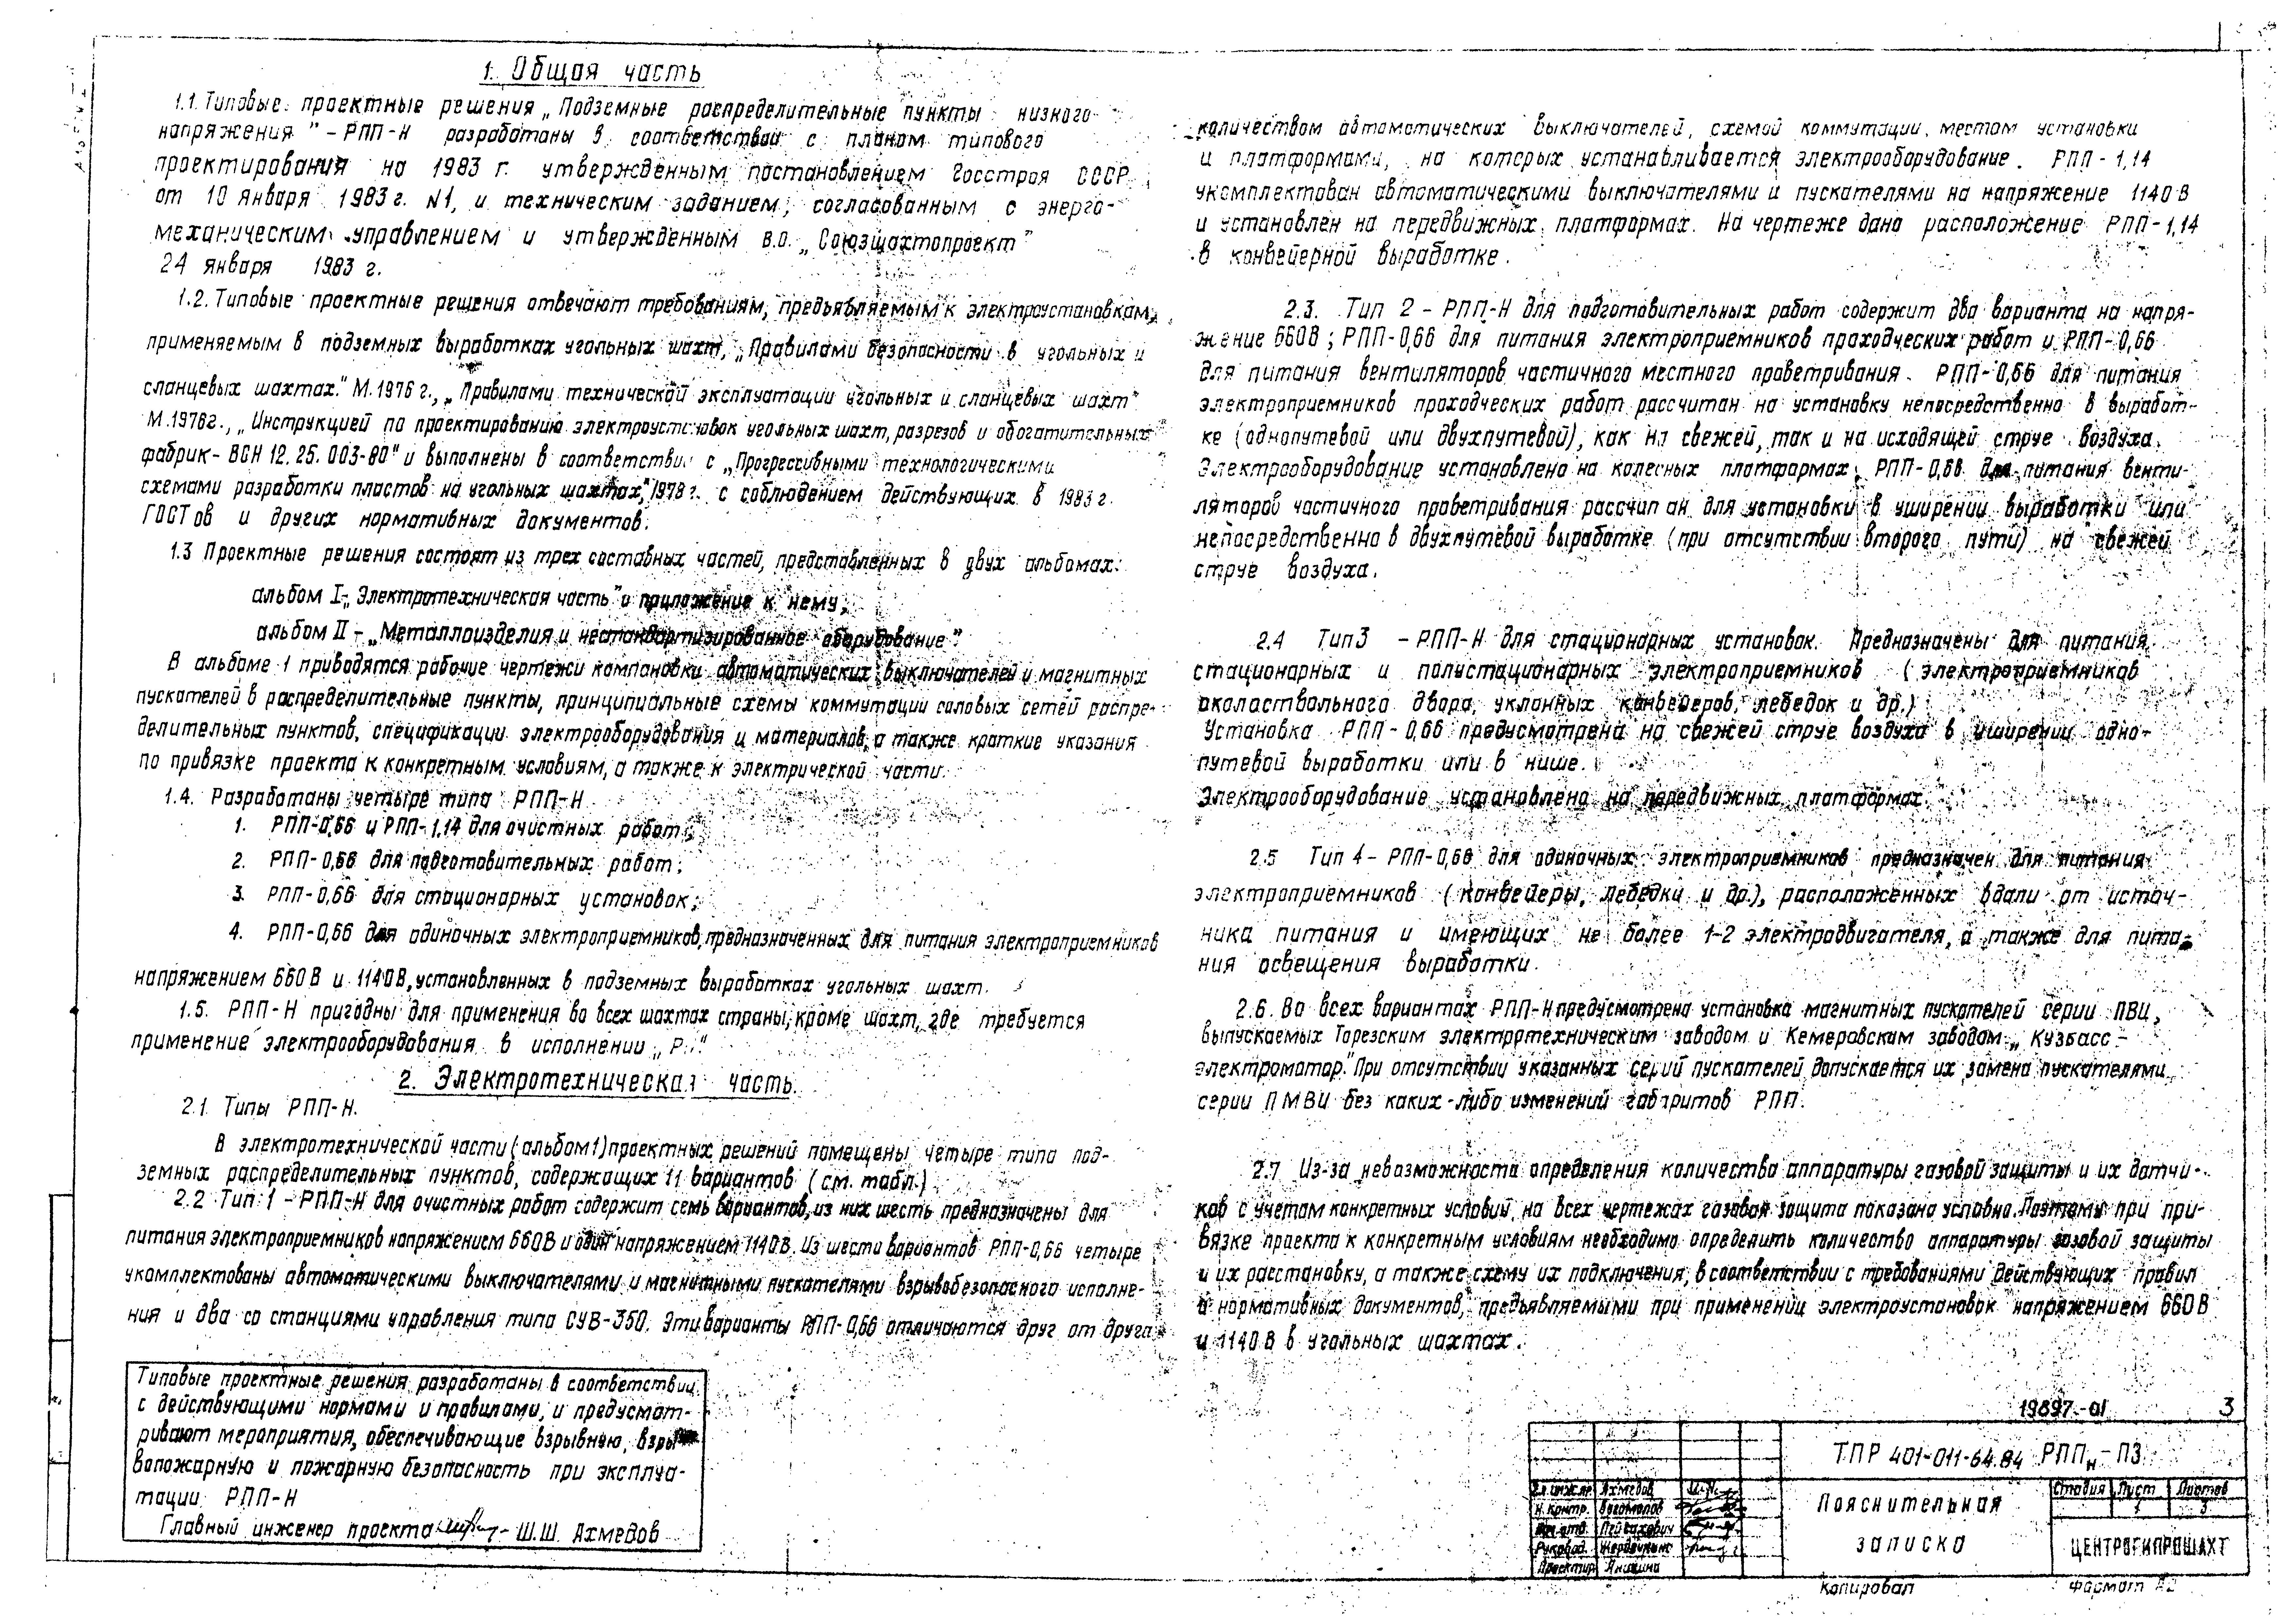 1. Общая часть
1.1. Типовые проектные решения „Подземные распределительные пункты низкого
напряжения" – РПП-Н разработаны в соответствии с планом типового
проектирования на 1983 г. утвержденным постановлением Госстроя СССР
от 10 января 1983 г. №1, и техническим заданием, согласованным с энерго-
механическим управлением и утвержденным В.О. „Союзшахтопроект"
24 января 1983 г.
1.2. Типовые проектные решения отвечают требованиям, предъявляемым к электроустановкам,
применяемым в подземных выработках угольных шахт, „Правилами безопасности в угольных и
сланцевых шахтах." М. 1976 г., „Правилами технической эксплуатации угольных и сланцевых шахт"
М. 1976 г., „Инструкцией по проектированию электроустановок угольных шахт, разрезов и обогатительных
фабрик – ВСН 12.25.003-80" и выполнены в соответствии с „Прогрессивными технологическими
схемами разработки пластов на угольных шахтах", 1978 г. с соблюдением действующих в 1983 г.
ГОСТов и других нормативных документов.
1.3 Проектные решения состоят из трех составных частей, представленных в двух альбомах:
альбом I – „Электротехническая часть" и приложение к нему;
альбом II – „Металлоизделия и нестандартизированное оборудование".
В альбоме 1 приводятся рабочие чертежи компановки автоматических выключателей и магнитных
пускателей в распределительные пункты, принципиальные схемы коммутации силовых сетей распре-
делительных пунктов, спецификации электрооборудования и материалов, а также краткие указания
по привязке проекта к конкретным условиям, а также к электрической части.
1.4. Разработаны четыре типа РПП-Н
1. РПП-0,66 и РПП-1,14 для очистных работ;
2. РПП-0,66 для подготовительных работ;
3. РПП-0,66 для стационарных установок;
4. РПП-0,66 для одиночных электроприемников, предназначенных для питания электроприемников
напряжением 660 В и 1140 В, установленных в подземных выработках угольных шахт.
1.5. РПП-Н пригодны для применения во всех шахтах страны, кроме шахт, где требуется
применение электрооборудования в исполнении „Р..."
2. Электротехническая часть.
2.1 Типы РПП-Н.
В электротехнической части (альбом 1) проектных решений помещены четыре типа под-
земных распределительных пунктов, содержащих 11 вариантов (см. табл.)
2.2 Тип 1 – РПП-Н для очистных работ содержит семь вариантов, из них шесть предназначены для
питания электроприемников напряжением 660 В и один напряжением 1140 В. Из шести вариантов РПП-0,66 четыре
укомплектованы автоматическими выключателями и магнитными пускателями взрывобезопасного исполне-
ния и два со станциями управления типа СУВ-350. Эти варианты РПП-0,66 отличаются друг от друга
Типовые проектные решения разработаны в соответствии
с действующими нормами и правилами, и предусмат-
ривают мероприятия, обеспечивающие взрывную, взры
вопожарную и пожарную безопасность при эксплуа-
тации РПП-Н
Главный инженер проекта – Ш.Ш. Ахмедов
количеством автоматических выключателей, схемой коммутации, местом установки
и платформами, на которых устанавливается электрооборудование. РПП-1,14
укомплектован автоматическими выключателями и пускателями на напряжение 1140 В
и установлен на передвижных платформах. На чертеже дано расположение РПП-1,14
в конвейерной выработке.
2.3. Тип 2 – РПП-Н для подготовительных работ содержит два варианта на напря-
жение 660 В; РПП-0,66 для питания электроприемников проходческих работ и РПП-0,66
для питания вентиляторов частичного местного проветривания. РПП-0,66 для питания
электроприемников проходческих работ рассчитан на установку непосредственно в выработ-
ке (однопутевой или двухпутевой), как на свежей, так и на исходящей струе воздуха.
Электрооборудование установлено на колесных платформах. РПП-0,66 для питания венти-
ляторов частичного проветривания рассчитан для установки в уширении выработки или
непосредственно в двухпутевой выработке (при отсутствии второго пути) на свежей
струе воздуха.
2.4 Тип 3 – РПП-Н для стационарных установок. Предназначены для питания
стационарных и полустационарных электроприемников (электроприемников
околоствольного двора, уклонных конвейеров, лебедок и др.)
Установка РПП-0,66 предусмотрена на свежей струе воздуха в уширении одно-
путевой выработки или в нише.
Электрооборудование установлено на передвижных платформах.
2.5 Тип 4 – РПП-0,66 для одиночных электроприемников предназначен для питания
электроприемников (конвейеры, лебедки и др.), расположенных вдали от источ-
ника питания и имеющих не более 1-2 электродвигателя, а также для пита-
ния освещения выработки.
2.6. Во всех вариантах РПП-Н предусмотрена установка магнитных пускателей серии ПВИ,
выпускаемых Торезским электротехническим заводом и Кемеровским заводом „Кузбасс-
электромотор". При отсутствии указанных серий пускателей допускается их замена пускателями
серии ПМВИ без каких-либо изменений габаритов РПП.
2.7 Из-за невозможности определения количества аппаратуры газовой защиты и их датчи-
ков с учетом конкретных условий, на всех чертежах газовая защита показана условно. Поэтому при при-
вязке проекта к конкретным условиям необходимо определить количество аппаратуры газовой защиты
и их расстановку, а также схему их подключения, в соответствии с требованиями действующих правил
и нормативных документов, предъявляемыми при применении электроустановок напряжением 660 В
и 1140 В в угольных шахтах.
19897-01 3
ТПР 401-011-64.84 РППн – ПЗ
Гл. инж. пр. Ахмедов
Н. контр. Богомолов
Нач. отд. Лейбахович
Руковод.
Проектир. Аникина
Пояснительная
записка
Стадия Лист Листов
1 3
ЦЕНТРОГИПРОШАХТ
Копировал Формат А2